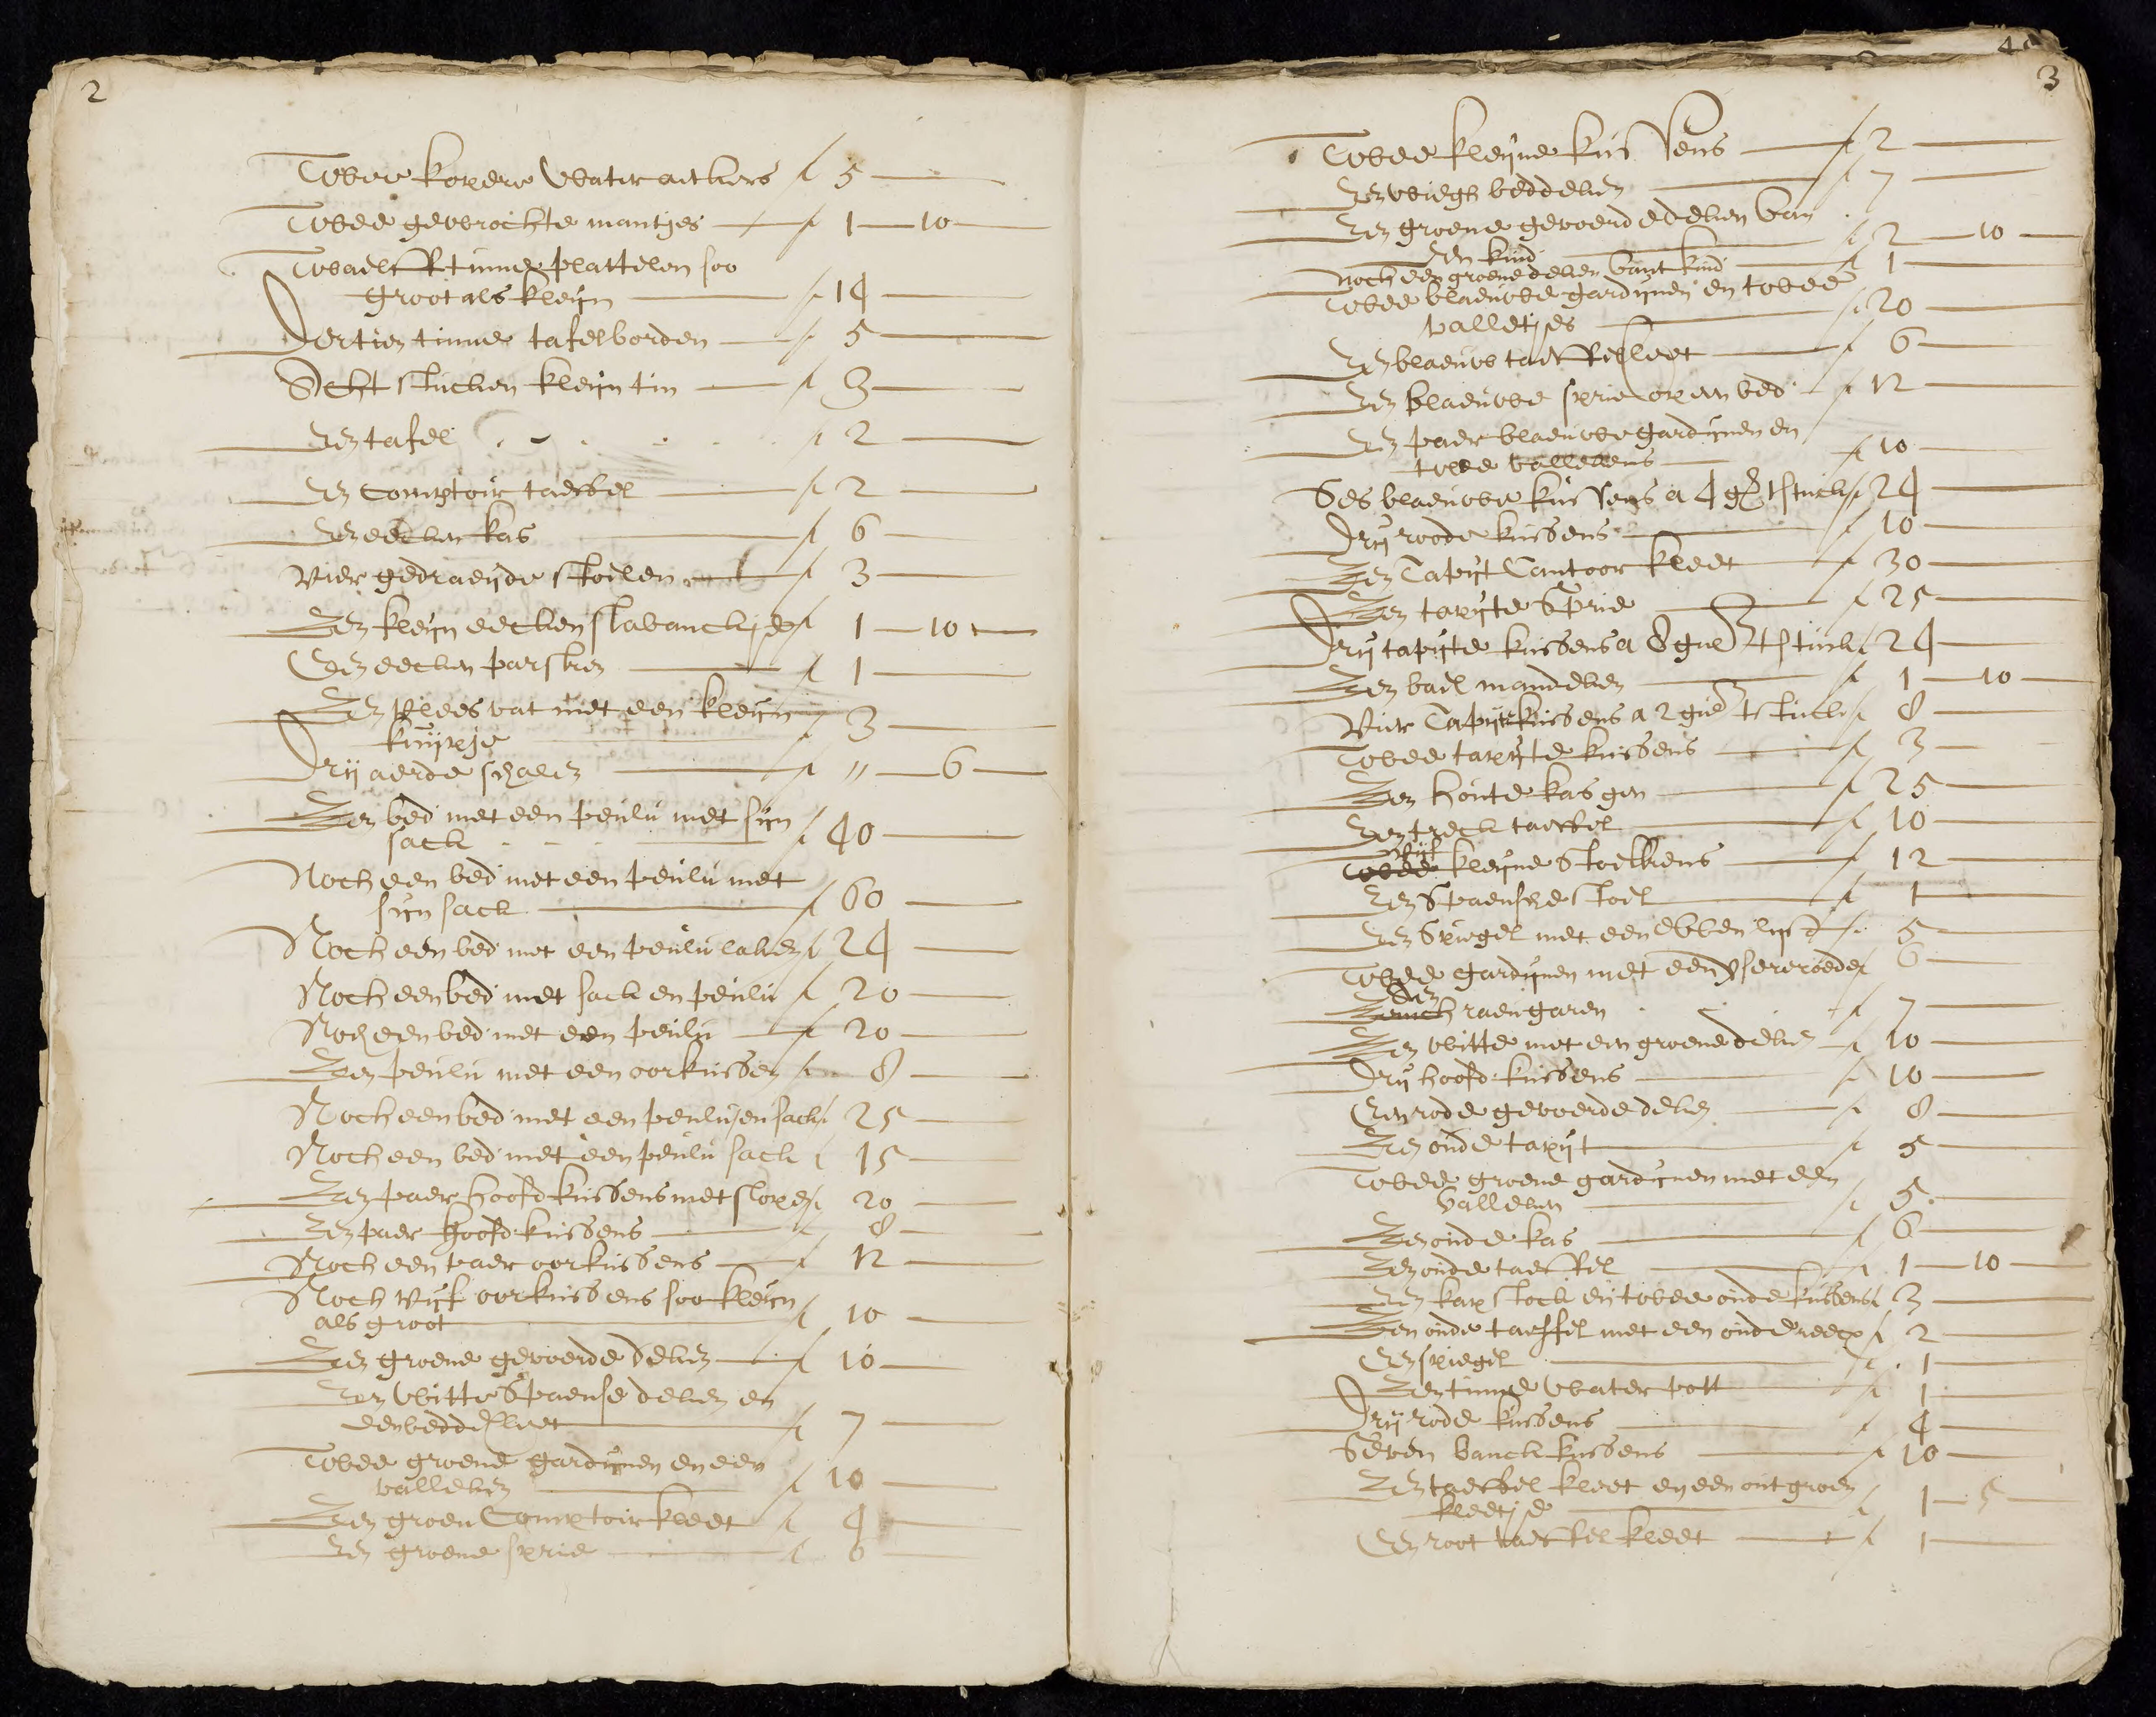 2
Twee kopere water aeckers f 5
Twee gewrochte mantges f 1 — 10
Twaelff tinne plattelen soo
groot als kleyn f 14
Dertien tinne tafelborden f 5
Acht stucken kleyn tin f 3
Een tafel f 2
Een Comptoir taeffel f 2
Een eecken kas f 6
Vier gedraeyde stoelen f 3
Een kleyn eecken slabanckje f 1 — 10
Een eecken parsken f 1
Een vlees vat met een kleyn
kuypje f 3
Dry aerde schalen f " — 6
Een bed met een peulu met syn
sack f 40
Noch een bed met een peulu met
syn sack f 60
Noch een bed met een peulu laken f 24
Noch een bed met sack en peulu f 20
Noch een bed met een peulu f 20
Een peulu met een oorkussen f 8
Noch een bed met een peulu en sack f 25
Noch een bed met een peulu sack f 15
Een paer hoofdkussens met slopen f 20
Een paer hoofdkussens f 8
Noch een paer oorkussens f 12
Noch vyf oorkussens soo kleyn
als groot f 10
Een groene gevoerde deken f 10
Een witte Spaense deken en
een beddekleet f 7
Twee groene gardynen en een
valleken f 10
Een groen Comptoir kleet f 4
Een groene sprie f 6
3
Twee kleyne kussens f 2
Een wiegh beddeken f 7
Een groene gevoerde deken van
een kind f 2 — 10
Noch een groene deken vant kind f 1
Twee blaeuwe gardynen en twee
valletjes f 20
Een blaeuw taeffelkleet f 6
Een blaeuwe sprie op een bed f 12
Een paer blaeuwe gardynen en
twee vallekens f 10
Ses blaeuwe kussens a 4 gl tstuck f 24
Dry roode kussens f 10
Een Tapyt Cantoor kleet f 30
Een tapyte Sprie f 25
Dry tapyte kussens a 8 gul tstuck f 24
Een bael mandeken f 1 — 10
Vier Tapyte kussens a 2 gul tstuck f 8
Twee tapyte kussens f 3
Een houte kasgen f 25
Een treck taeffel f 10
vyf
Twee kleyne Stoelkens f 12
Een Spaensche stoel f 1
Een Spiegel met een Ebben lyst f 5
Twee gardynen met een ysere roede f 6
Een
raeu garen f 7
Een witte met een groene deken f 10
Dry hoofd kussens f 10
Een rode gevoerde deken f 8
Een oude tapyt f 5
Twee groene gardynen met een
valleken f 5
Een oude kas f 6
Een oude taeffel f 1 — 10
Een kapstock en twee oude kussens f 3
Een oude taeffel met een oude reep f 2
Een spiegel f 1
Een tinne water pott f 1
Dry rode kussens f 4
Seven banck kussens f 10
Een taeffel kleet en een out groen
kleetje f 1 — 5
Een root taeffel kleet f 1